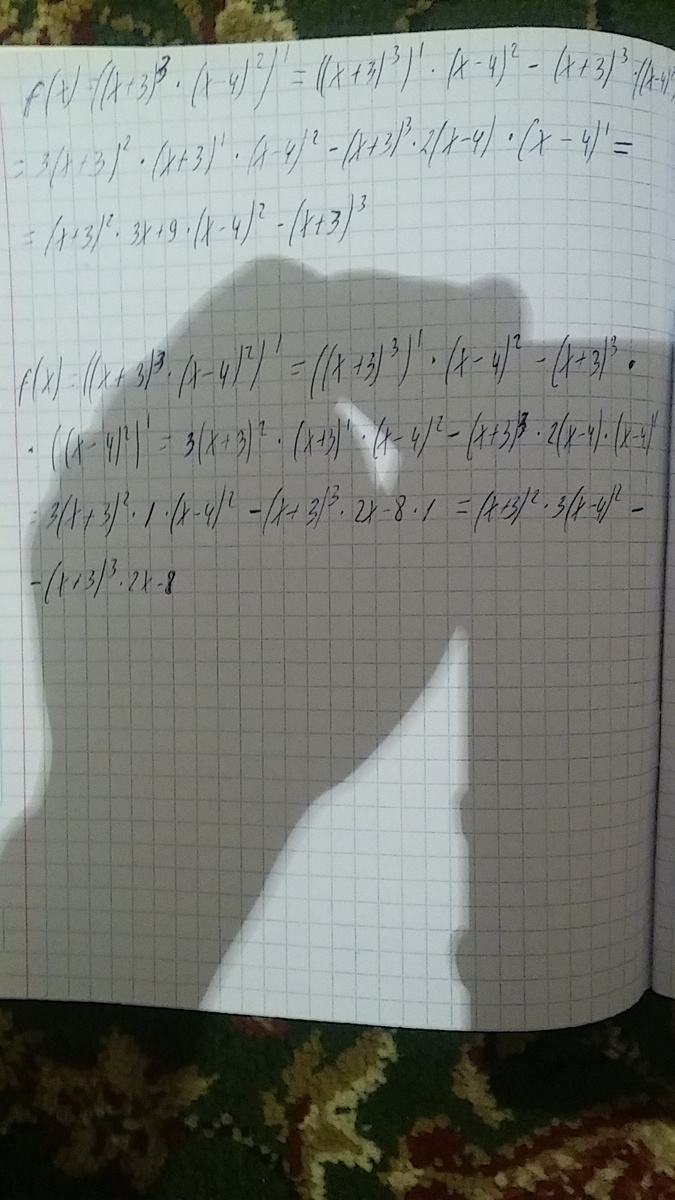 f(x)=((x+3)³·(x-4)²)' = ((x+3)³)'·(x-4)² - (x+3)³·((x-4)²
= 3(x+3)²·(x+3)'·(x-4)² - (x+3)³·2(x-4)·(x-4)' =
= (x+3)²·3x+9·(x-4)² - (x+3)³
f(x)=((x+3)³·(x-4)²)' = ((x+3)³)'·(x-4)² - (x+3)³·
·((x-4)²)' = 3(x+3)²·(x+3)'·(x-4)² - (x+3)³·2(x-4)·(x-4)'
= 3(x+3)²·1·(x-4)² - (x+3)³·2x-8·1 = (x+3)²·3(x-4)² -
-(x+3)³·2x-8